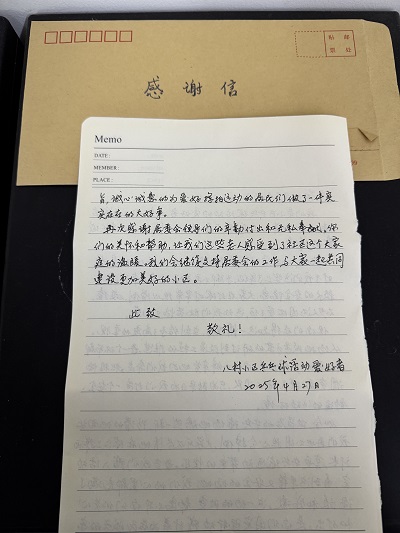 贴 邮
票 处
感谢信
Memo
DATE:
MEMBER:
PLACE:
诚心诚意的为爱好 运动的居民们做了一件实
实在在的大好事。
再次感谢居委会领导们的辛勤付出和无私奉献。你
们的关怀和帮助,让我们这些老人感受到了社区这个大家
庭的温暖。我们会继续支持居委会的工作与大家一起共同
建设更加美好的小区。
此致
敬礼!
八村小区乒乓球活动爱好者
2025年4月27日